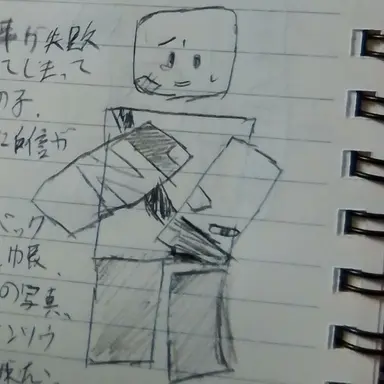 事が失敗
てしまって
の子、
に自信が
ベック
帳、
の写真、
ンソウ